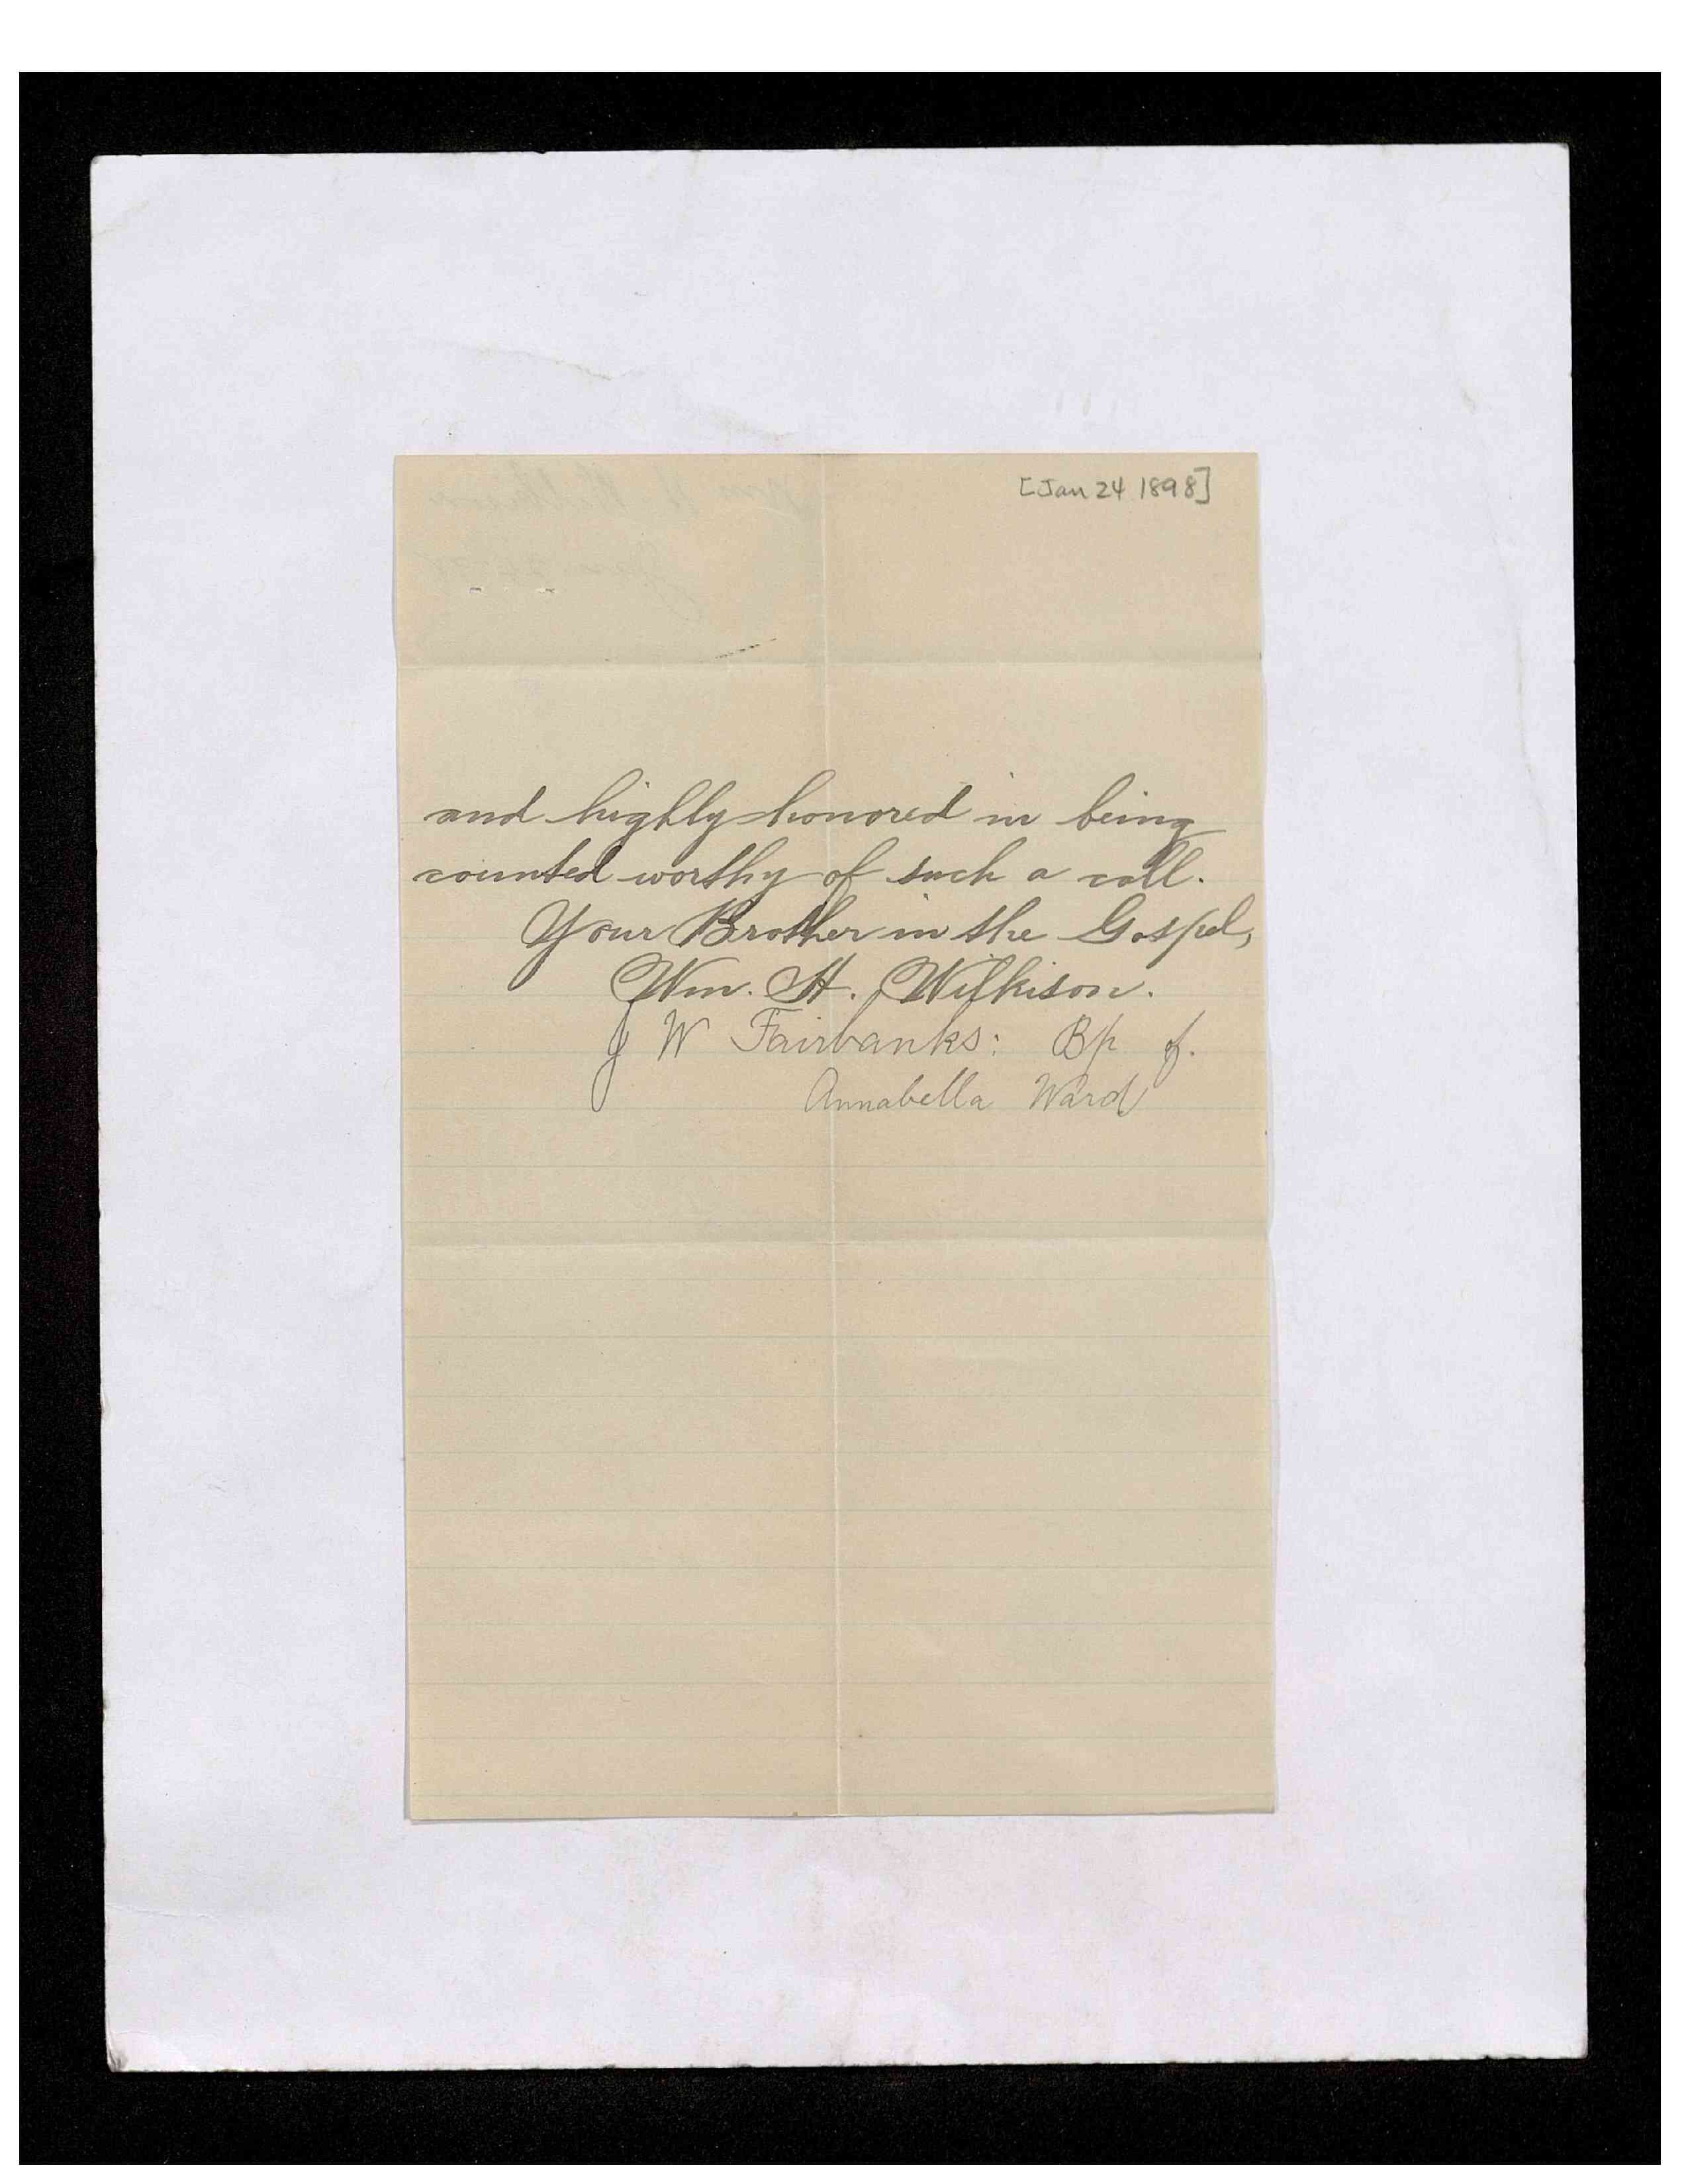 [Jan 24 1898]
and highly honored in being
counted worthy of such a call.
Your Brother in the Gospel,
Wm. H. Wilkison.
J W Fairbanks: Bp of.
Annabella Ward